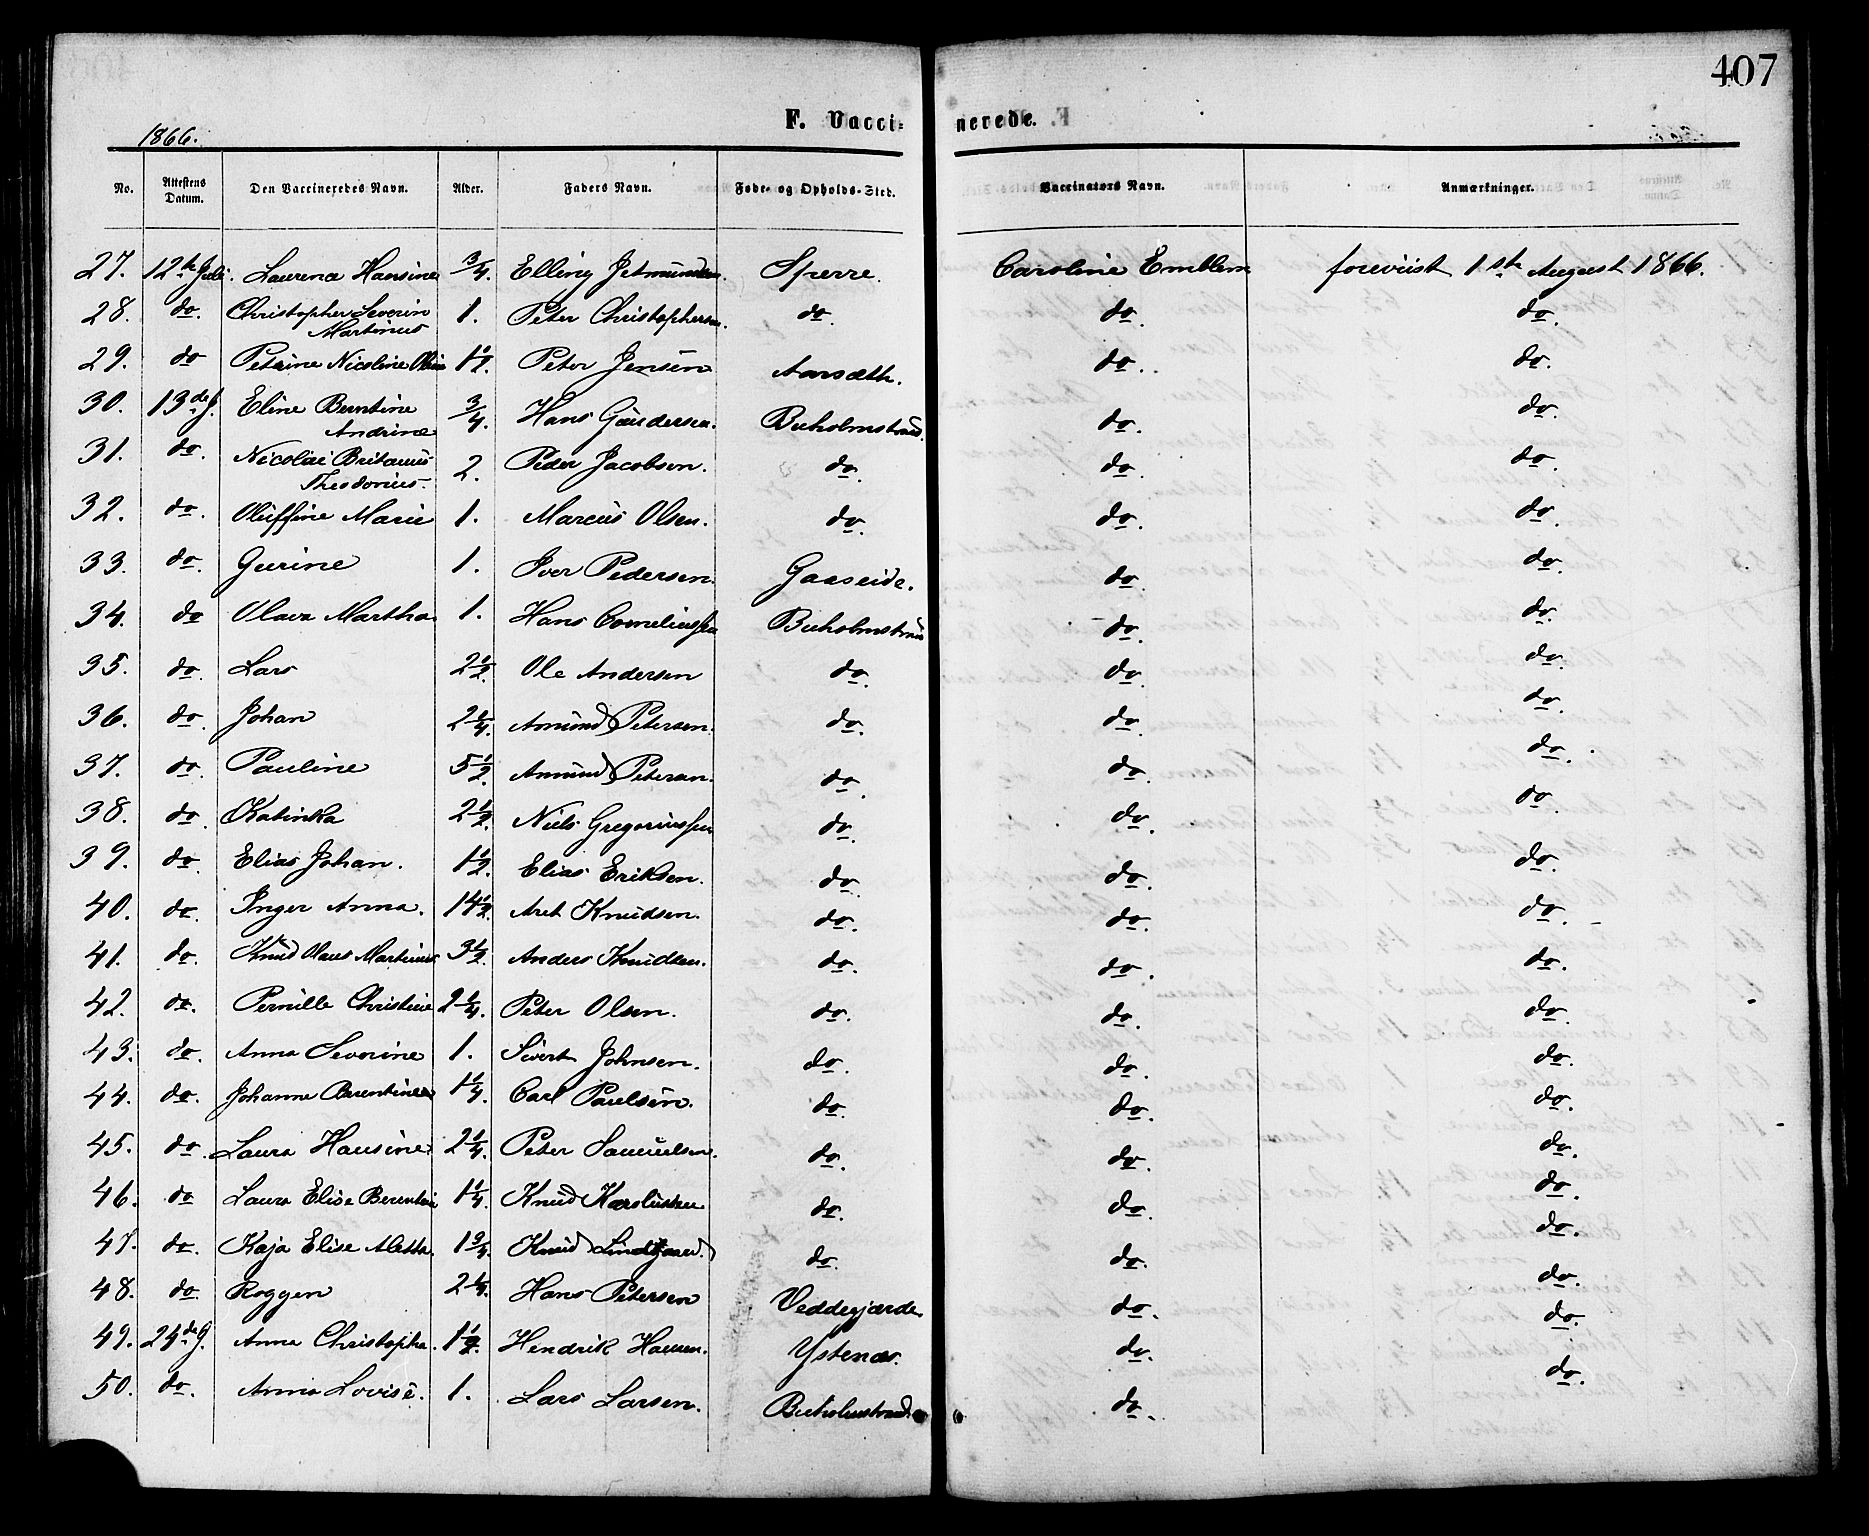 407
F. Vaccinerede.
1866.
No. Attestens Datum. Den Vaccineredes Navn. Alder. Faders Navn. Føde- og Opholds-Sted. Vaccinators Navn. Anmærkninger.
27. 12te Juli. Laurence Hansine 3/4. Elling Jetmundsen. Sperre. Caroline Emblem foreviist 1ste August 1866.
28. do. Christopher Severin 1. Peter Christophersen. do. do. do.
Martinus
29. do Petrine Nicoline Oline 1 1/2. Peter Jensen Aarsæth. do. do.
30. 13de J. Eline Berntine 3/4. Hans Gundersen. Buholmstrand. do. do.
Andrine
31. do. Nicolai Britanus 2. Peder Jacobsen. do. do. do.
Theodorius.
32. do. Oluffine Marie 1. Marcus Olsen. do. do. do.
33. do. Gurine 1. Iver Pedersen. Gaaseide. do. do.
34. do Olava Martha 1. Hans Corneliussen Buholmstrand do. do.
35. do. Lars 2 1/2. Ole Andersen do. do. do.
36. do. Johan 2 1/4. Amund Petersen. do. do. do.
37. do. Pauline 5 1/2. Amund Petersen. do. do. do.
38. do. Katinka 2 1/2. Niels Gregoriussen do. do. do.
39. do. Elias Johan. 1 1/2. Elias Eriksen. do. do. do.
40. do. Inger Anna. 14 1/2. Aret Knudsen. do. do. do.
41. do. Knud Olaus Martinus 3 1/2. Anders Knudsen. do. do. do.
42. do. Pernille Christine 2 1/4. Peter Olsen. do. do. do.
43. do. Anna Severine 1. Sivert Johnsen. do. do. do.
44. do. Johanne Berentine 1 1/4. Carl Paulsen. do. do. do.
45. do. Laura Hansine 2 1/4. Peter Samuelsen. do. do. do.
46. do Laura Elise Berentine 1 1/4. Knud Karolussen do. do. do.
47. do. Kaja Elise Aletta. 1 3/4. Knud Lindgaard. do. do. do.
48. do. Roggen 2 1/4. Hans Petersen Veddegjærde do. do.
49. 24de J. Anne Christophe. 1 1/2. Hendrik Hansen. Ystenæs. do. do.
50. do. Anna Lovise. 1. Lars Larsen. Buholmstrand. do. do.